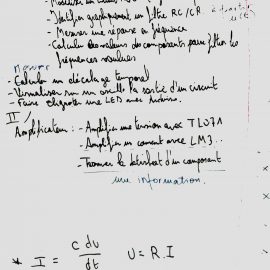 - Identifier graphiquement un filtre RC/CR.
- Mesurer une réponse en fréquence
- Calculer des valeurs de composants pour filtrer les fréquences
- Calculer un décalage temporel
- Visualiser sur un oscillo la sortie d'un circuit
- Faire clignoter une LED avec Arduino.
II/
Amplificateur : - Amplifier une tension avec TL071
- Amplifier un courant avec LM3..
- Trouver le datasheet d'un composant
une information.
* I = C du/dt U = R.I